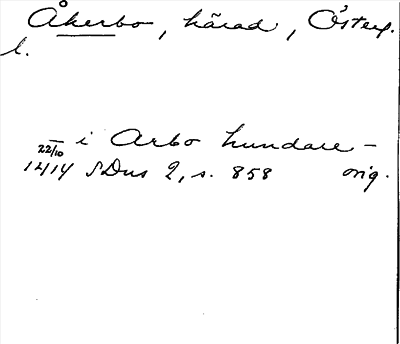 Åkerbo, härad, Österg.
l.
— i Arbo hundare —
22/10
1414 SDns 2, s. 858 orig.